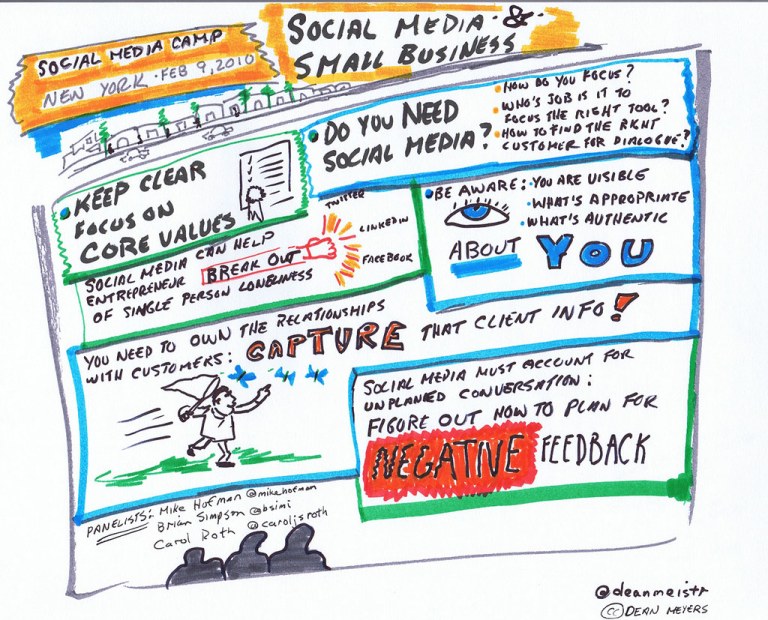 SOCIAL MEDIA CAMP
NEW YORK · FEB 9, 2010
SOCIAL MEDIA · &
SMALL BUSINESS
DO YOU NEED
SOCIAL MEDIA?
HOW DO YOU FOCUS?
WHO'S JOB IS IT TO
FOCUS THE RIGHT TOOL?
HOW TO FIND THE RIGHT
CUSTOMER FOR DIALOGUE?
KEEP CLEAR
FOCUS ON
CORE VALUES
SOCIAL MEDIA CAN HELP
ENTREPRENEUR BREAK OUT
OF SINGLE PERSON LONELINESS
TWITTER
LINKEDIN
FACEBOOK
BE AWARE: · YOU ARE VISIBLE
· WHAT'S APPROPRIATE
· WHAT'S AUTHENTIC
ABOUT YOU
YOU NEED TO OWN THE RELATIONSHIPS
WITH CUSTOMERS: CAPTURE THAT CLIENT INFO!
SOCIAL MEDIA MUST ACCOUNT FOR
UNPLANNED CONVERSATION:
FIGURE OUT HOW TO PLAN FOR
NEGATIVE FEEDBACK
PANELISTS: Mike Hofman @mikehofman
Brian Simpson @bsimi
Carol Roth @caroljsroth
@deanmeistr
(cc) DEAN MEYERS